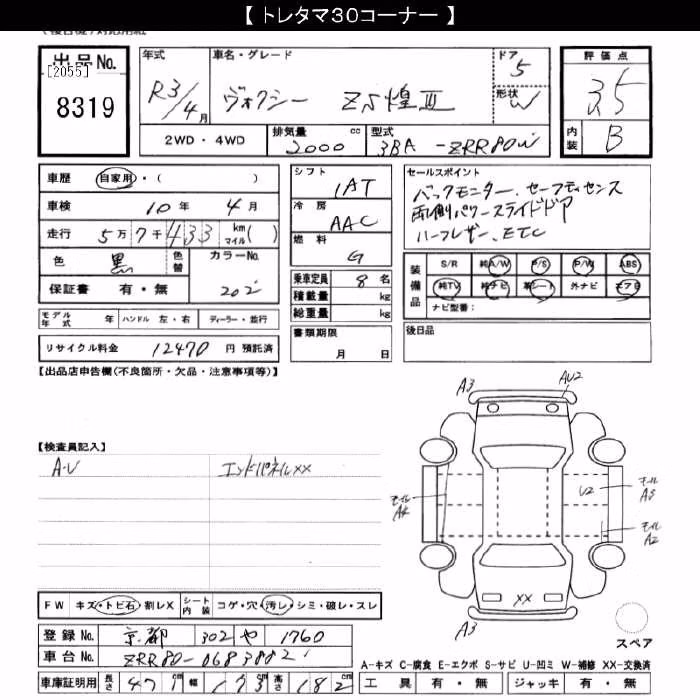 【 トレタマ30コーナー 】
出品No.
[2055]
8319
年式
R3/4月
車名・グレード
ヴォクシー ZS煌Ⅲ
ドア
5
形状
W
評価点
3.5
内装
B
2WD・4WD
排気量 cc
2000
型式
3BA-ZRR80W
車歴 自家用・( )
車検 10年 4月
走行 5万7千433 km マイル( )
色 黒 色替
カラーNo.
202
保証書 有・無
モデル年式 年 ハンドル 左・右 ディーラー・並行
リサイクル料金 12470 円 預託済
シフト
1AT
冷房
AAC
燃料
G
乗車定員 8名
積載量 kg
総重量 kg
書類期限
月 日
セールスポイント
バックモニター、セーフティセンス
両側パワースライドドア
ハーフレザー、ETC
装備品
S/R 純A/W P/S P/W ABS
純TV 純ナビ 革シート 外ナビ エアB
ナビ型番:
後日品
【出品店申告欄(不良箇所・欠品・注意事項等)】
【検査員記入】
A-U
エンドパネルXX
A3
AU2
モール
A4
U2
モール
A3
モール
A2
XX
A3
スペア
FW キズ・トビ石・割レX シート内装 コゲ・穴・汚レ・シミ・破レ・スレ
登録No. 京都 302 や 1760
車台No. ZRR80-0683882
車庫証明用 長さ 471 幅 173 高さ 182 cm
A-キズ C-腐食 E-エクボ S-サビ U-凹ミ W-補修 XX-交換済
工具 有・無 ジャッキ 有・無